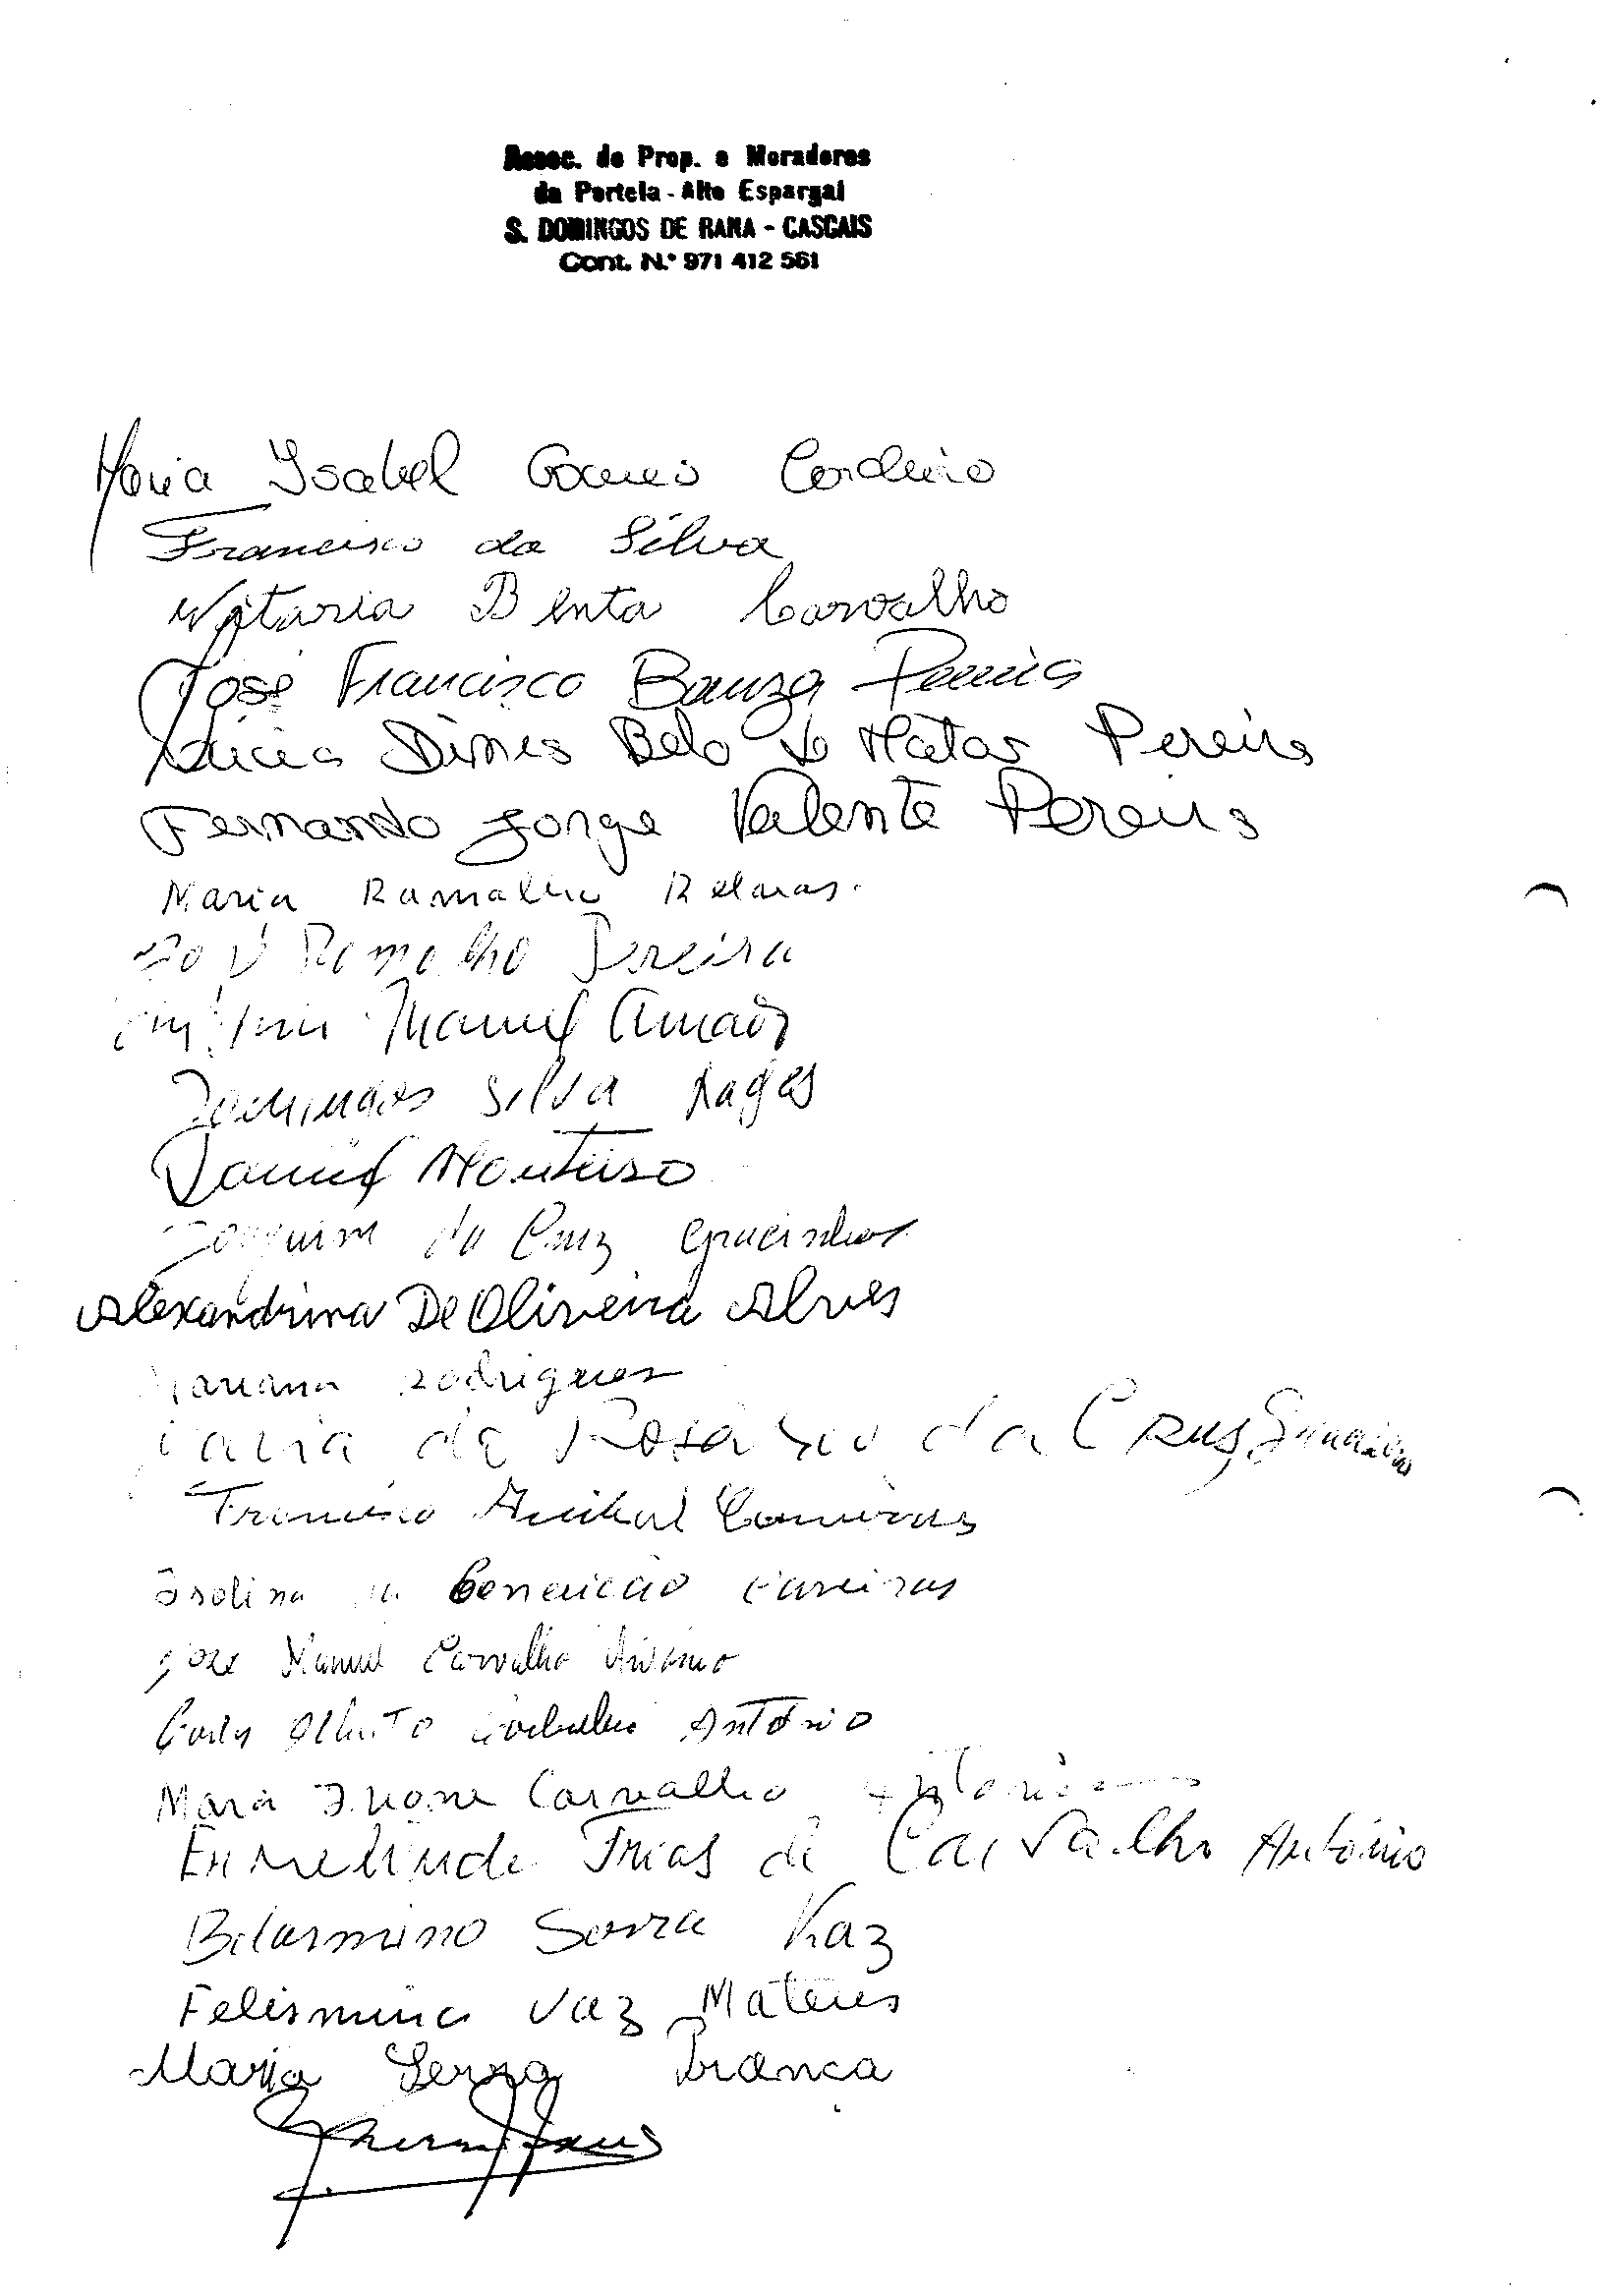 Assoc. de Prop. e Moradores
da Portela - Alto Espargal
S. DOMINGOS DE RANA - CASCAIS
Cont. N.º 971 412 561
Maria Isabel Gomes Cordeiro
Francisco da Silva
Vitaria Benta Carvalho
José Francisco Bauza Pereira
Dines Belo de Matos Pereira
Fernando Jorge Valente Pereira
Maria Ramalho
Ramalho Pereira
Manuel Amador
Domingos Silva
Daniel Monteiro
Joaquim da Cruz
Alexandrina De Oliveira Alves
Mariana Rodrigues
Maria do Rosario da Crus
Francisco Anibal
Conceicao
José Manuel Carvalho António
António
Maria Ivone Carvalho Antonio
Ermelinda Frias de Carvalho António
Belarmino Serra Vaz
Felismina Vaz Mateus
Maria Serra Branca